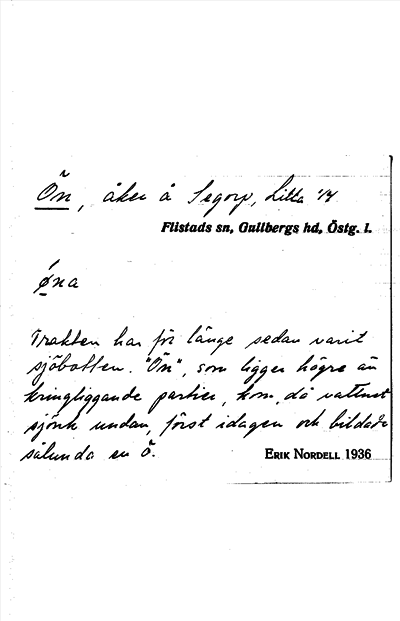 Ön, åker å Segorp, Lilla 1/4
Flistads sn, Gullbergs hd, Östg. l.
øna
Trakten har för länge sedan varit
sjöbotten. "Ön", som ligger högre än
kringliggande partier, kom, då vattnet
sjönk undan, först i dagen och bildade
sålunda en ö.
ERIK NORDELL 1936